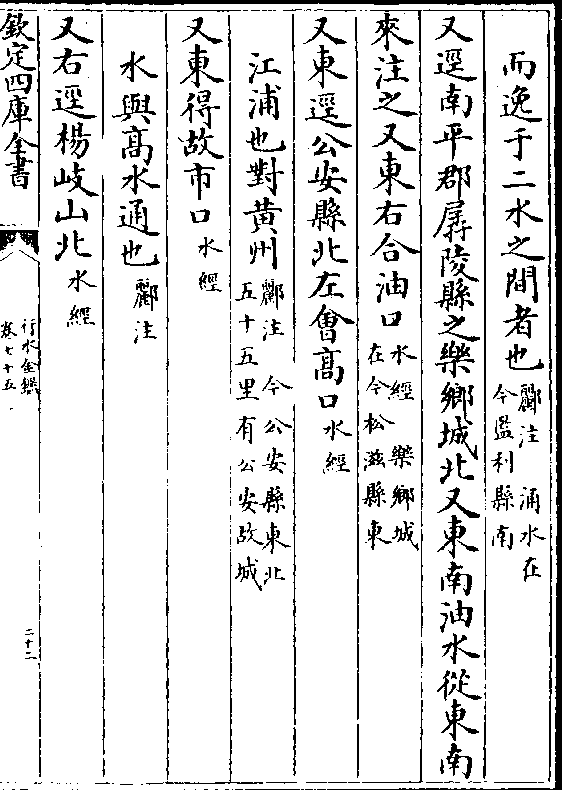 而逸于二水之間者也酈注 涌水在今監利縣南
又逕南平郡孱陵縣之樂鄉城北又東南油水從東南
來注之又東右合油口水經 樂鄉城在今松滋縣東
又東逕公安縣北左會高口水經
江浦也對黃州酈注 今公安縣東北五十五里有公安故城
又東得故市口水經
水與高水通也酈注
又右逕楊岐山北水經
欽定四庫全書
行水金鑑
卷七十五
二十二